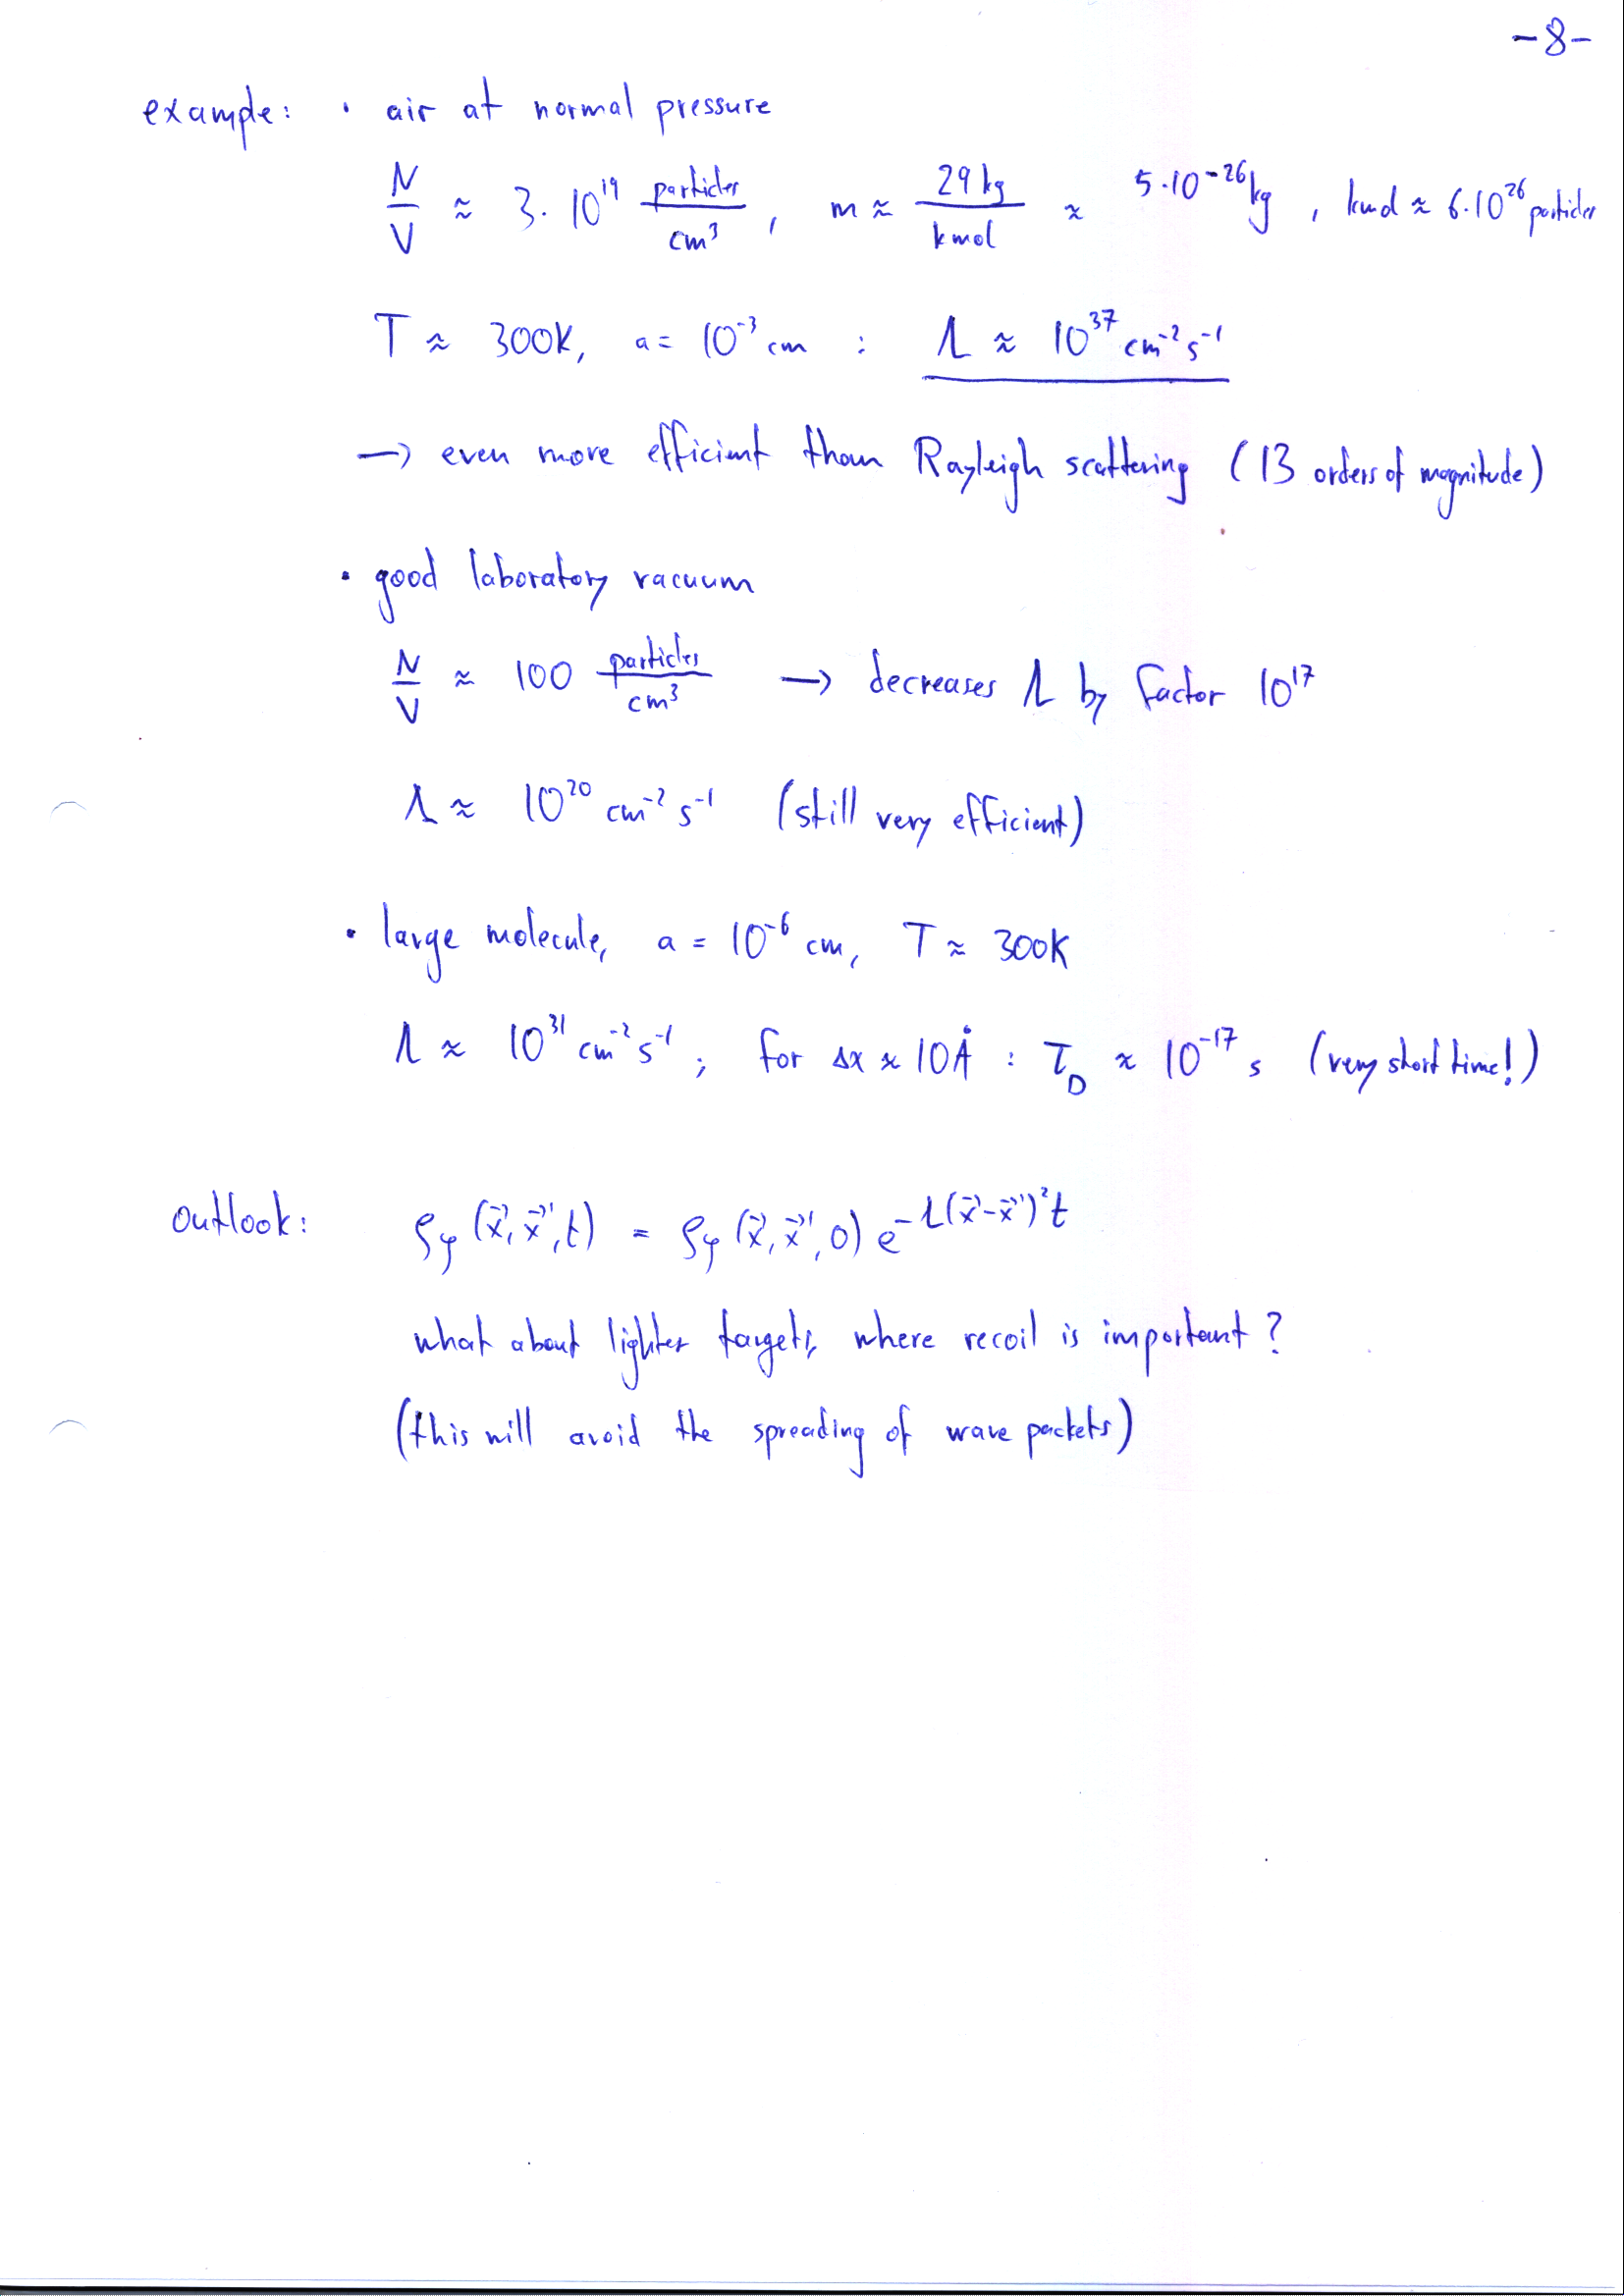 -8-
example: • air at normal pressure
N/V ≈ 3·10¹⁹ particles/cm³, m ≈ 29 kg/kmol ≈ 5·10⁻²⁶ kg, kmol ≈ 6·10²⁶ particles
T ≈ 300K, a = 10⁻³ cm : Λ ≈ 10³⁷ cm⁻² s⁻¹
→ even more efficient than Rayleigh scattering (13 orders of magnitude)
• good laboratory vacuum
N/V ≈ 100 particles/cm³ → decreases Λ by factor 10¹⁷
Λ ≈ 10²⁰ cm⁻² s⁻¹ (still very efficient)
• large molecule, a = 10⁻⁶ cm, T ≈ 300K
Λ ≈ 10³¹ cm⁻² s⁻¹; for Δx ≈ 10Å : τ_D ≈ 10⁻¹⁷ s (very short time!)
outlook: ρ_φ(x⃗, x⃗', t) = ρ_φ(x⃗, x⃗', 0) e^{-Λ(x⃗-x⃗')² t}
what about lighter targets, where recoil is important?
(this will avoid the spreading of wave packets)